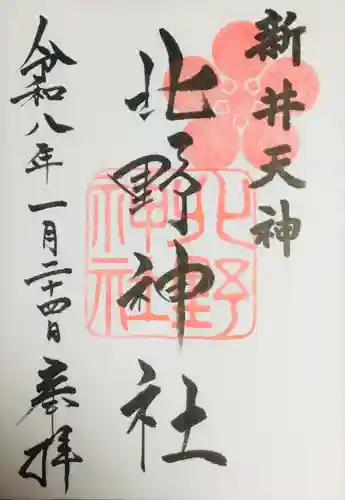 新井天神
北野神社
令和八年一月二十四日 奉拝
北野神社